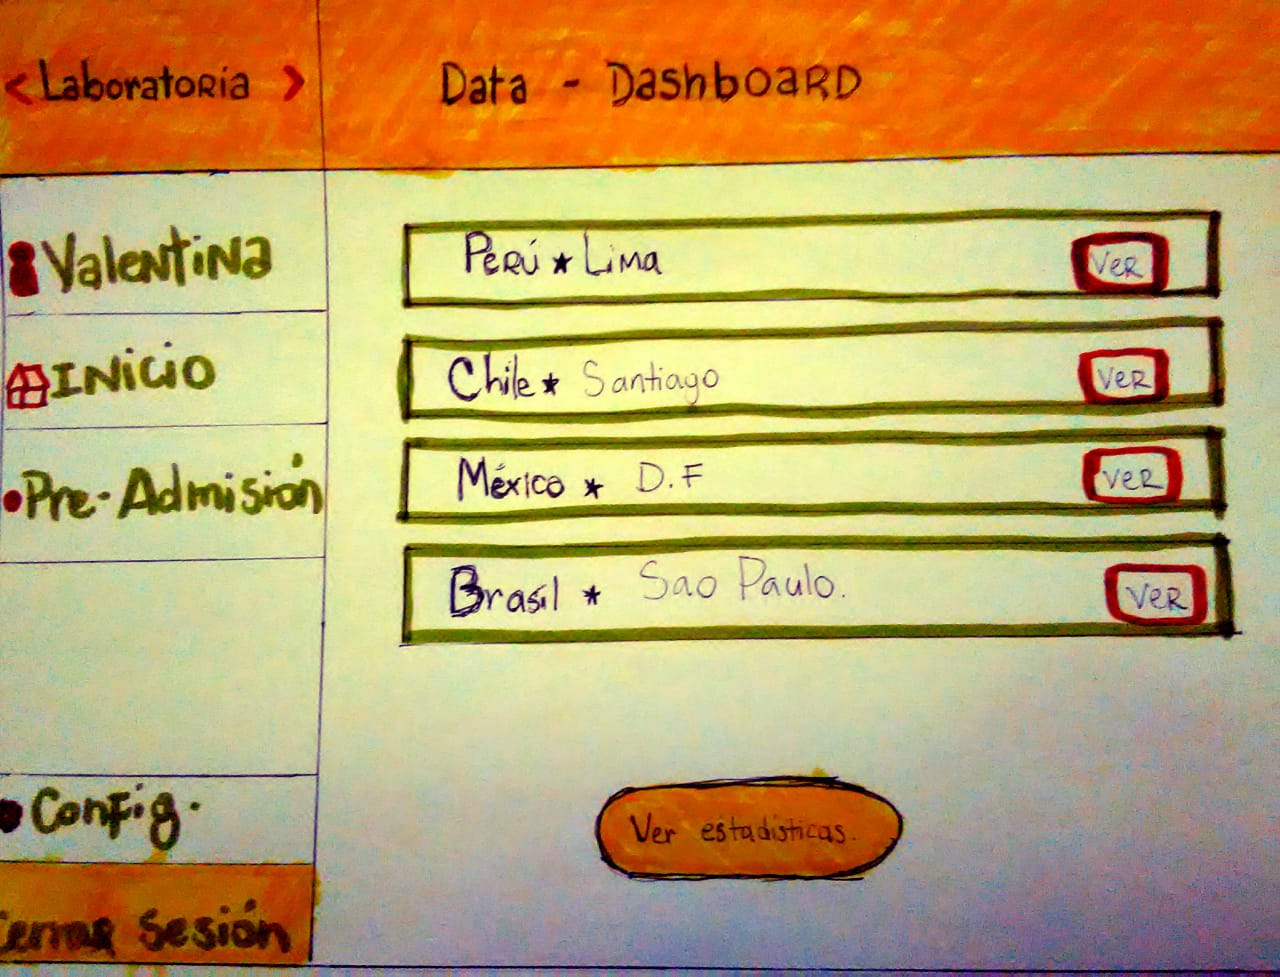 < Laboratoria >
Data - Dashboard
Valentina
Inicio
Pre-Admisión
Config.
Cerrar sesión
Perú ★ Lima
Ver
Chile ★ Santiago
Ver
México ★ D.F
Ver
Brasil ★ Sao Paulo.
Ver
Ver estadísticas.